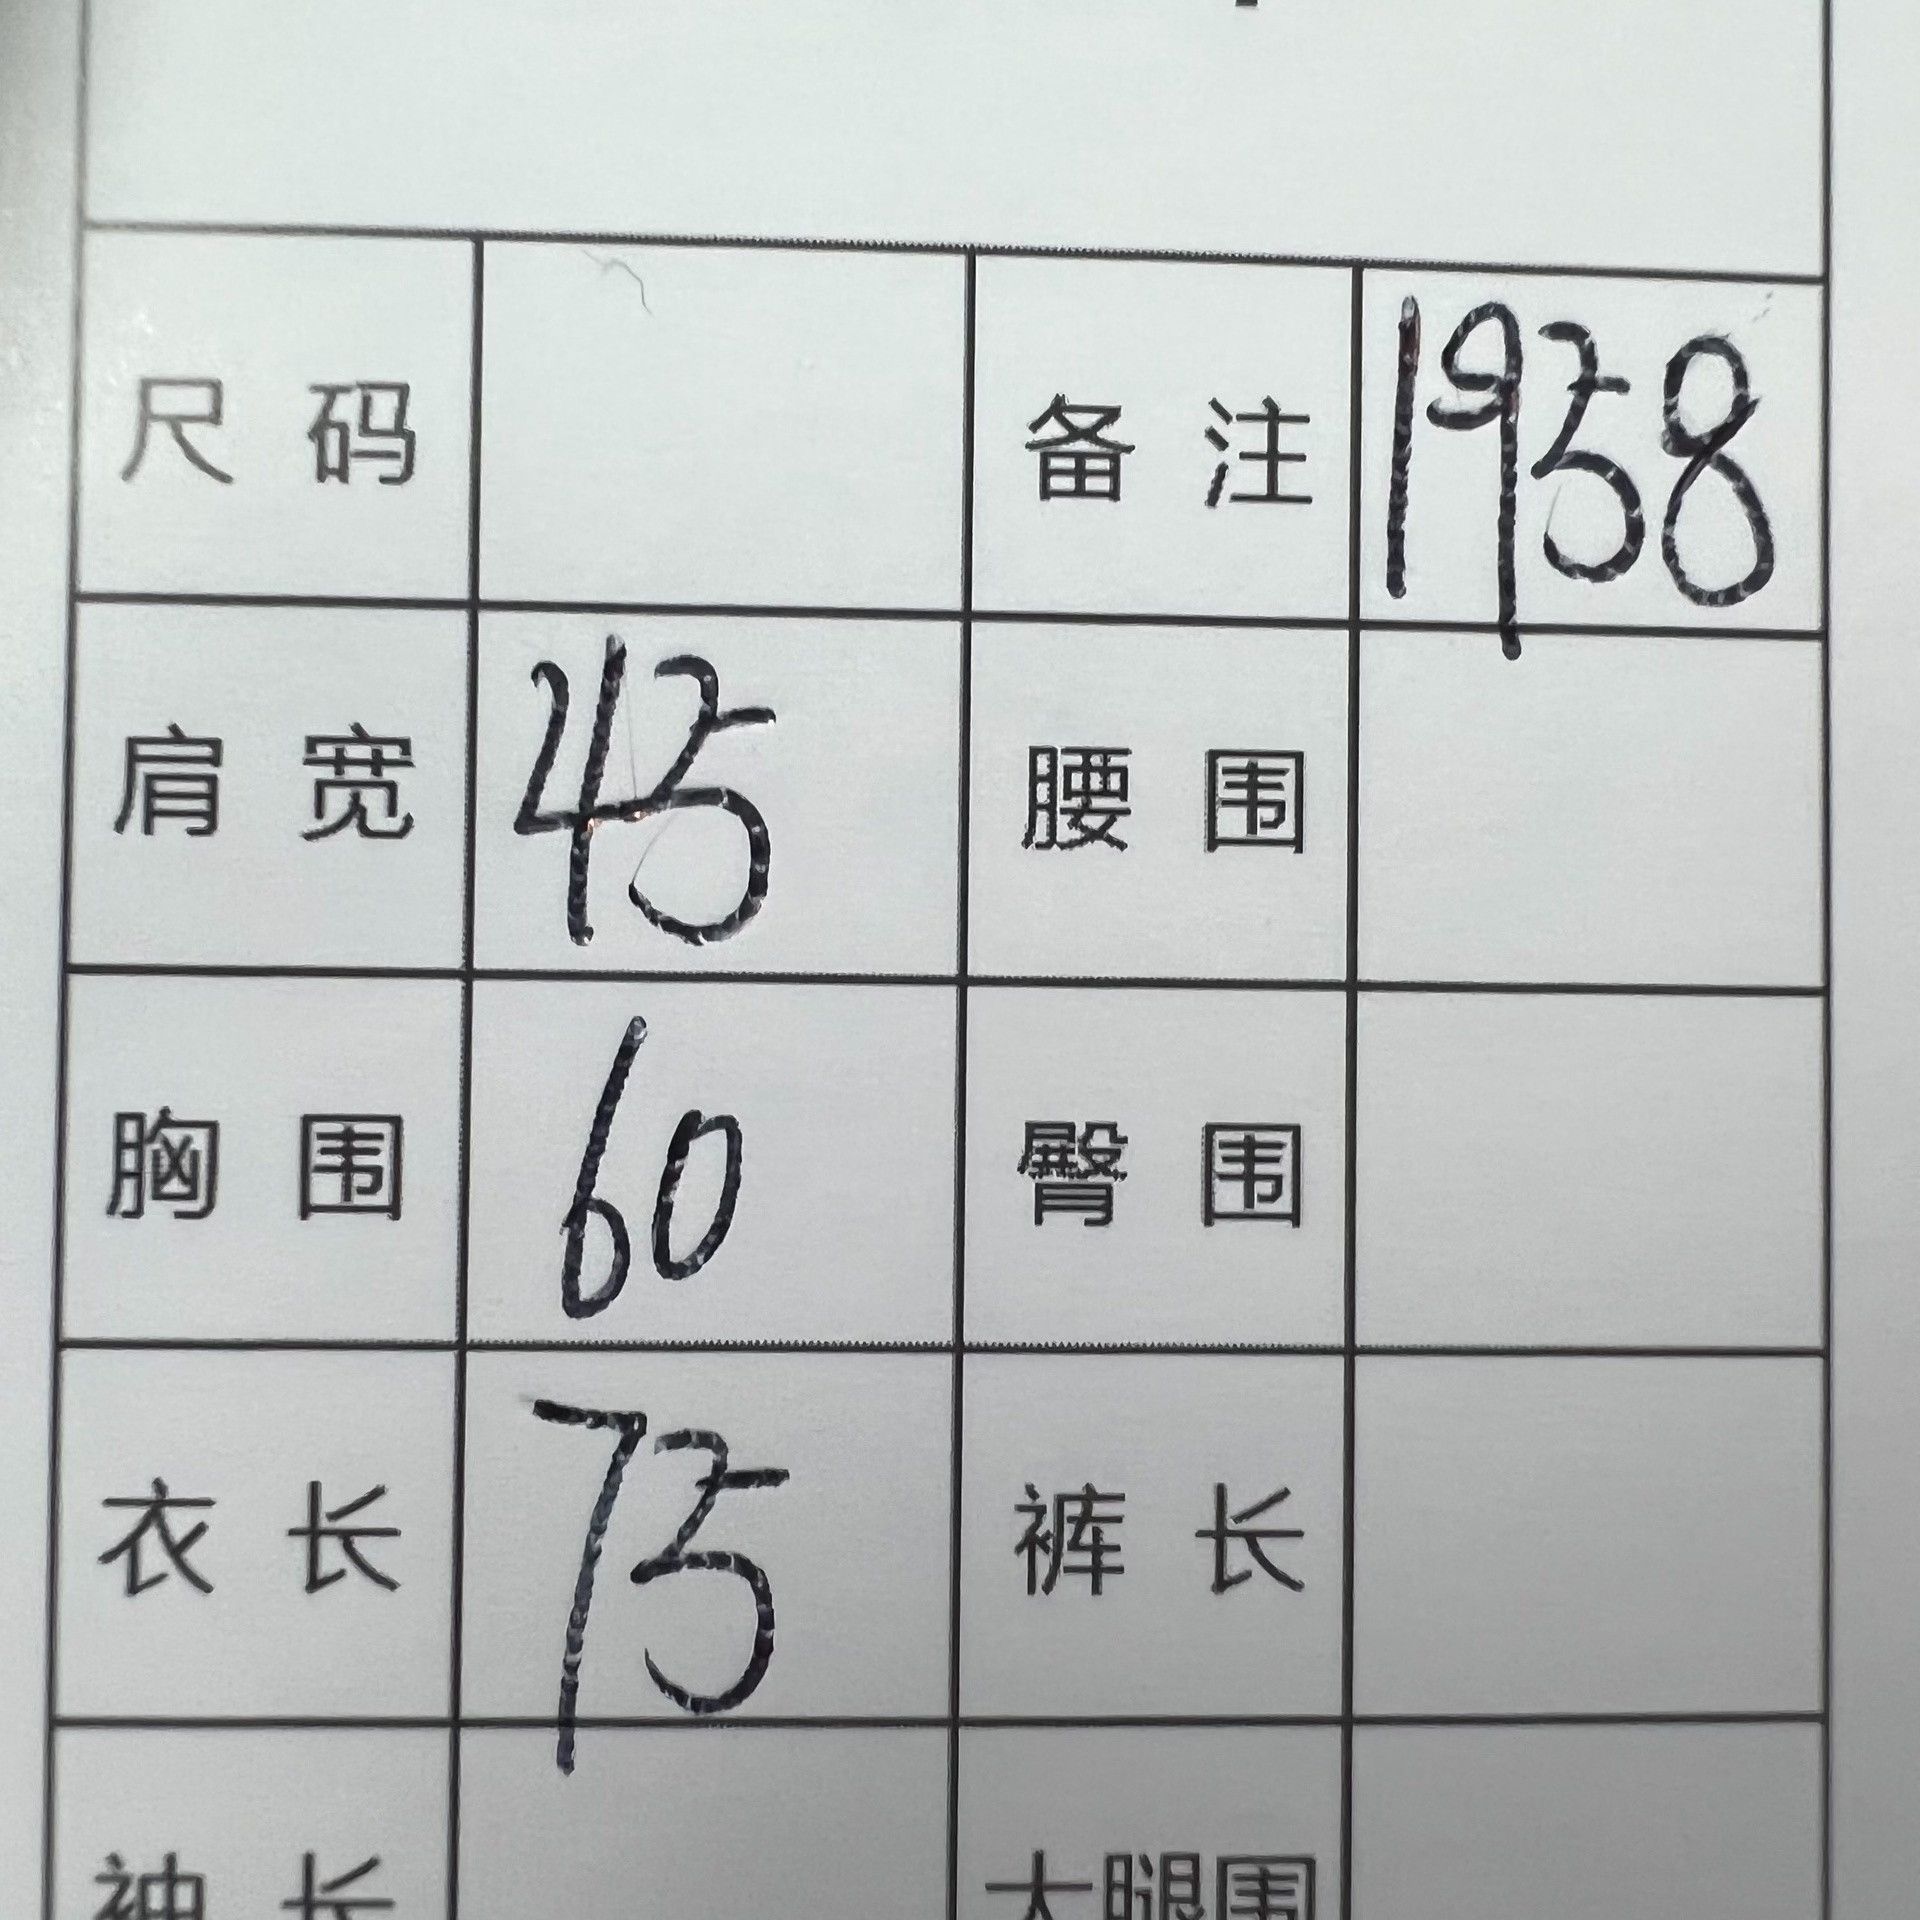 尺 码 备 注 1958
肩 宽 45 腰 围
胸 围 60 臀 围
衣 长 75 裤 长
袖 长 大腿围